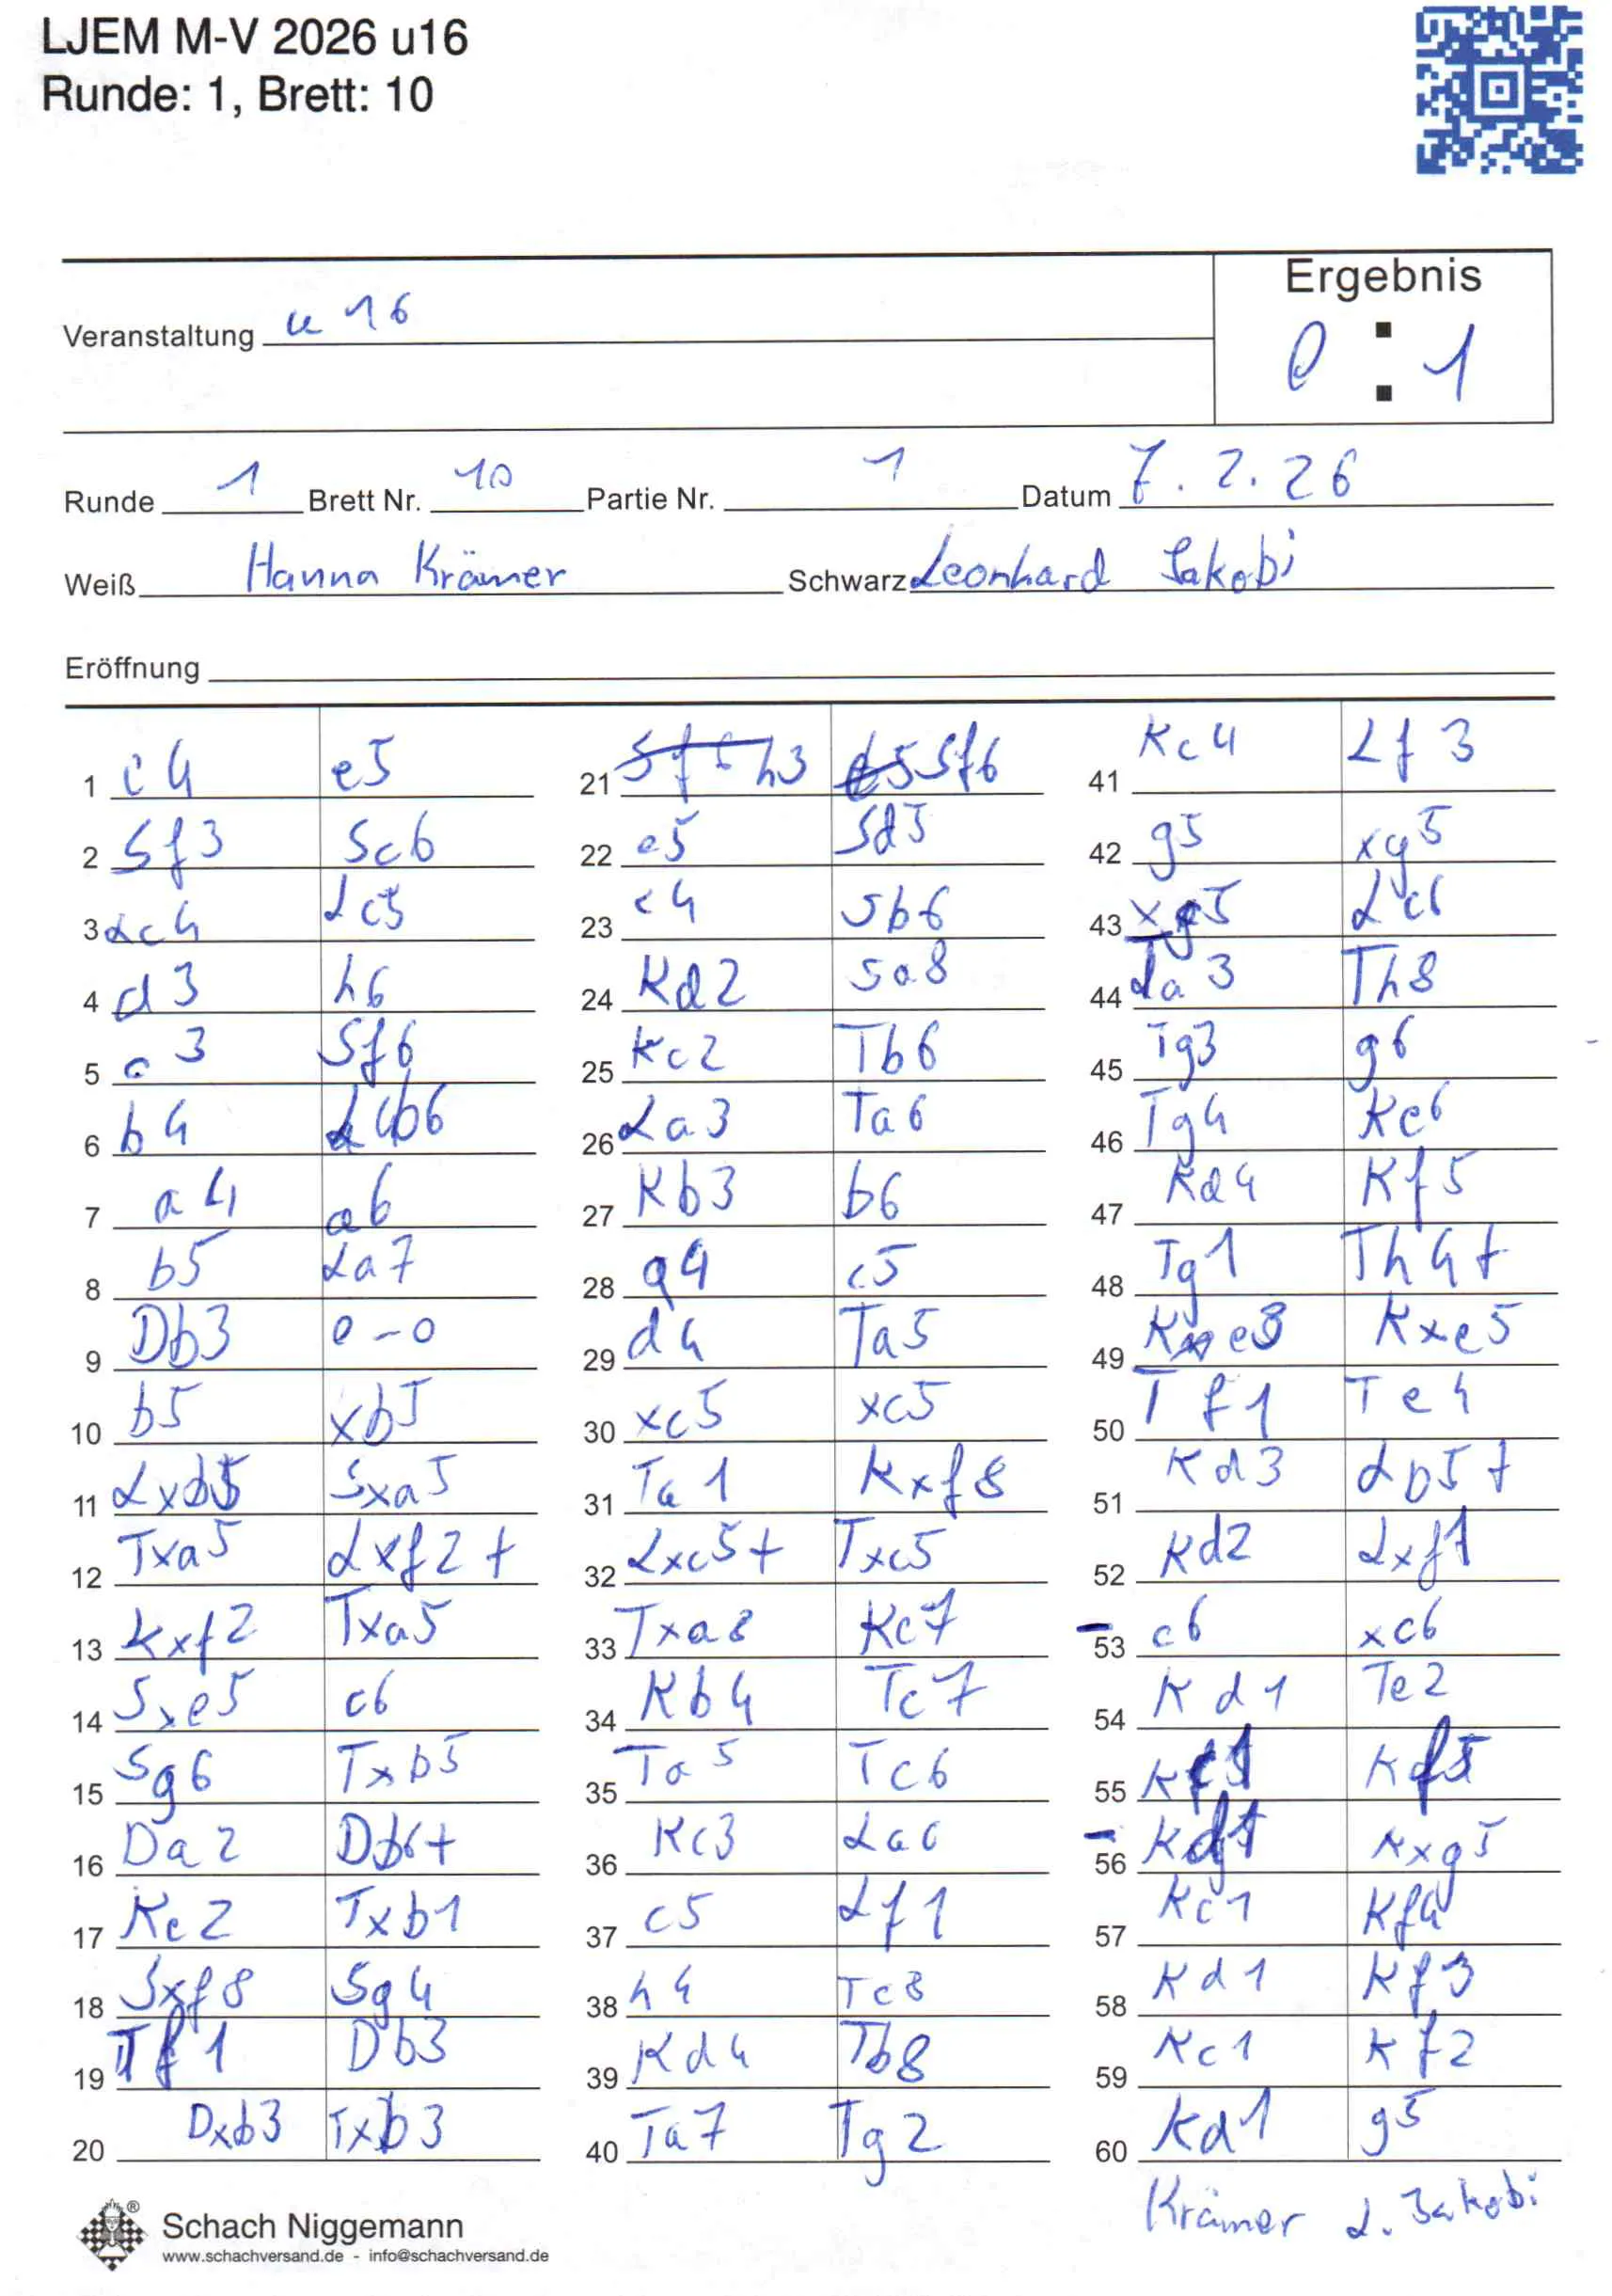 LJEM M-V 2026 u16
Runde: 1, Brett: 10
Ergebnis
Veranstaltung u 16
0 : 1
Runde 1 Brett Nr. 10 Partie Nr. 1 Datum 7.2.26
Weiß Hanna Krämer Schwarz Leonhard Jakobi
Eröffnung
1 c4 e5
2 Sf3 Sc6
3 Lc4 Lc5
4 d3 h6
5 c3 Sf6
6 b4 Lb6
7 a4 a6
8 b5 La7
9 Db3 0-0
10 b5 xb5
11 Lxb5 Sxa5
12 Txa5 Lxf2+
13 Kxf2 Txa5
14 Sxe5 c6
15 Sg6 Txb5
16 Da2 Db6+
17 Ke2 Txb1
18 Sxf8 Sg4
19 Tf1 Db3
20 Dxb3 Txb3
21 h3 Sf6
22 e5 Sd5
23 c4 Sb6
24 Kd2 Sa8
25 Kc2 Tb6
26 La3 Ta6
27 Kb3 b6
28 g4 c5
29 d4 Ta5
30 xc5 xc5
31 Ta1 Kxf8
32 Lxc5+ Txc5
33 Txa8 Ke7
34 Kb4 Tc7
35 Ta5 Tc6
36 Kc3 La6
37 c5 Lf1
38 h4 Tc8
39 Kd4 Tb8
40 Ta7 Tg2
41 Kc4 Lf3
42 g5 xg5
43 xg5 Lc6
44 Ta3 Th8
45 Tg3 g6
46 Tg4 Ke6
47 Kd4 Kf5
48 Tg1 Th4+
49 Ke3 Kxe5
50 Tf1 Te4
51 Kd3 Lb5+
52 Kd2 Lxf1
53 c6 xc6
54 Kd1 Te2
55 Kc1 Kf5
56 Kd1 Kxg5
57 Kc1 Kf4
58 Kd1 Kf3
59 Kc1 Kf2
60 Kd1 g5
Krämer L. Jakobi
Schach Niggemann
www.schachversand.de - info@schachversand.de